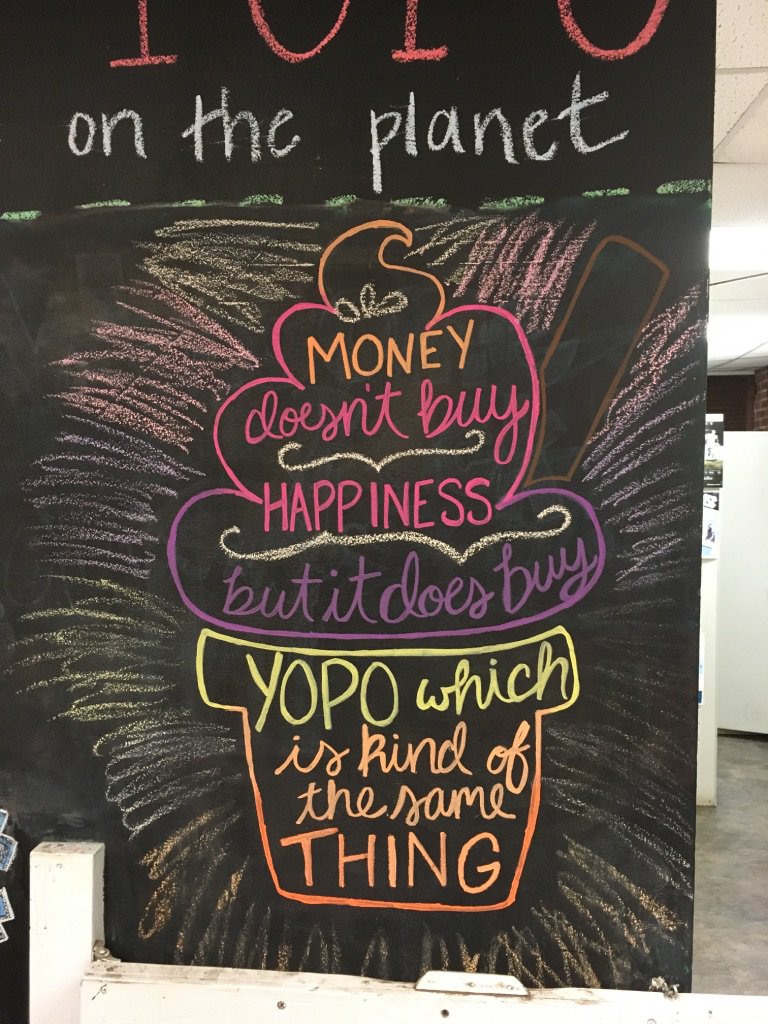 YOPO
on the planet
MONEY
doesn't buy
HAPPINESS
but it does buy
YOPO which
is kind of
the same
THING